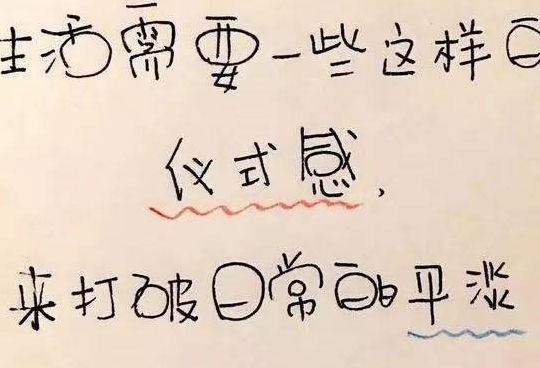 生活需要一些这样的
仪式感,
来打破日常的平淡